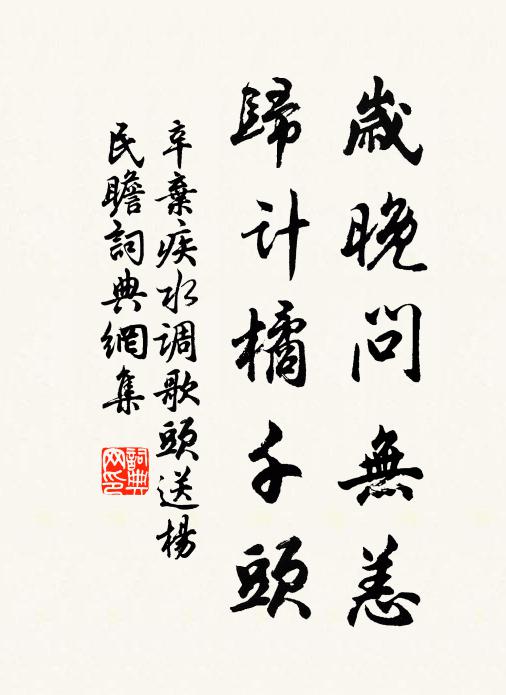 歲晚問無恙
歸計橘千頭
辛棄疾水调歌頭送楊
民瞻詞典網集
詞典
网印